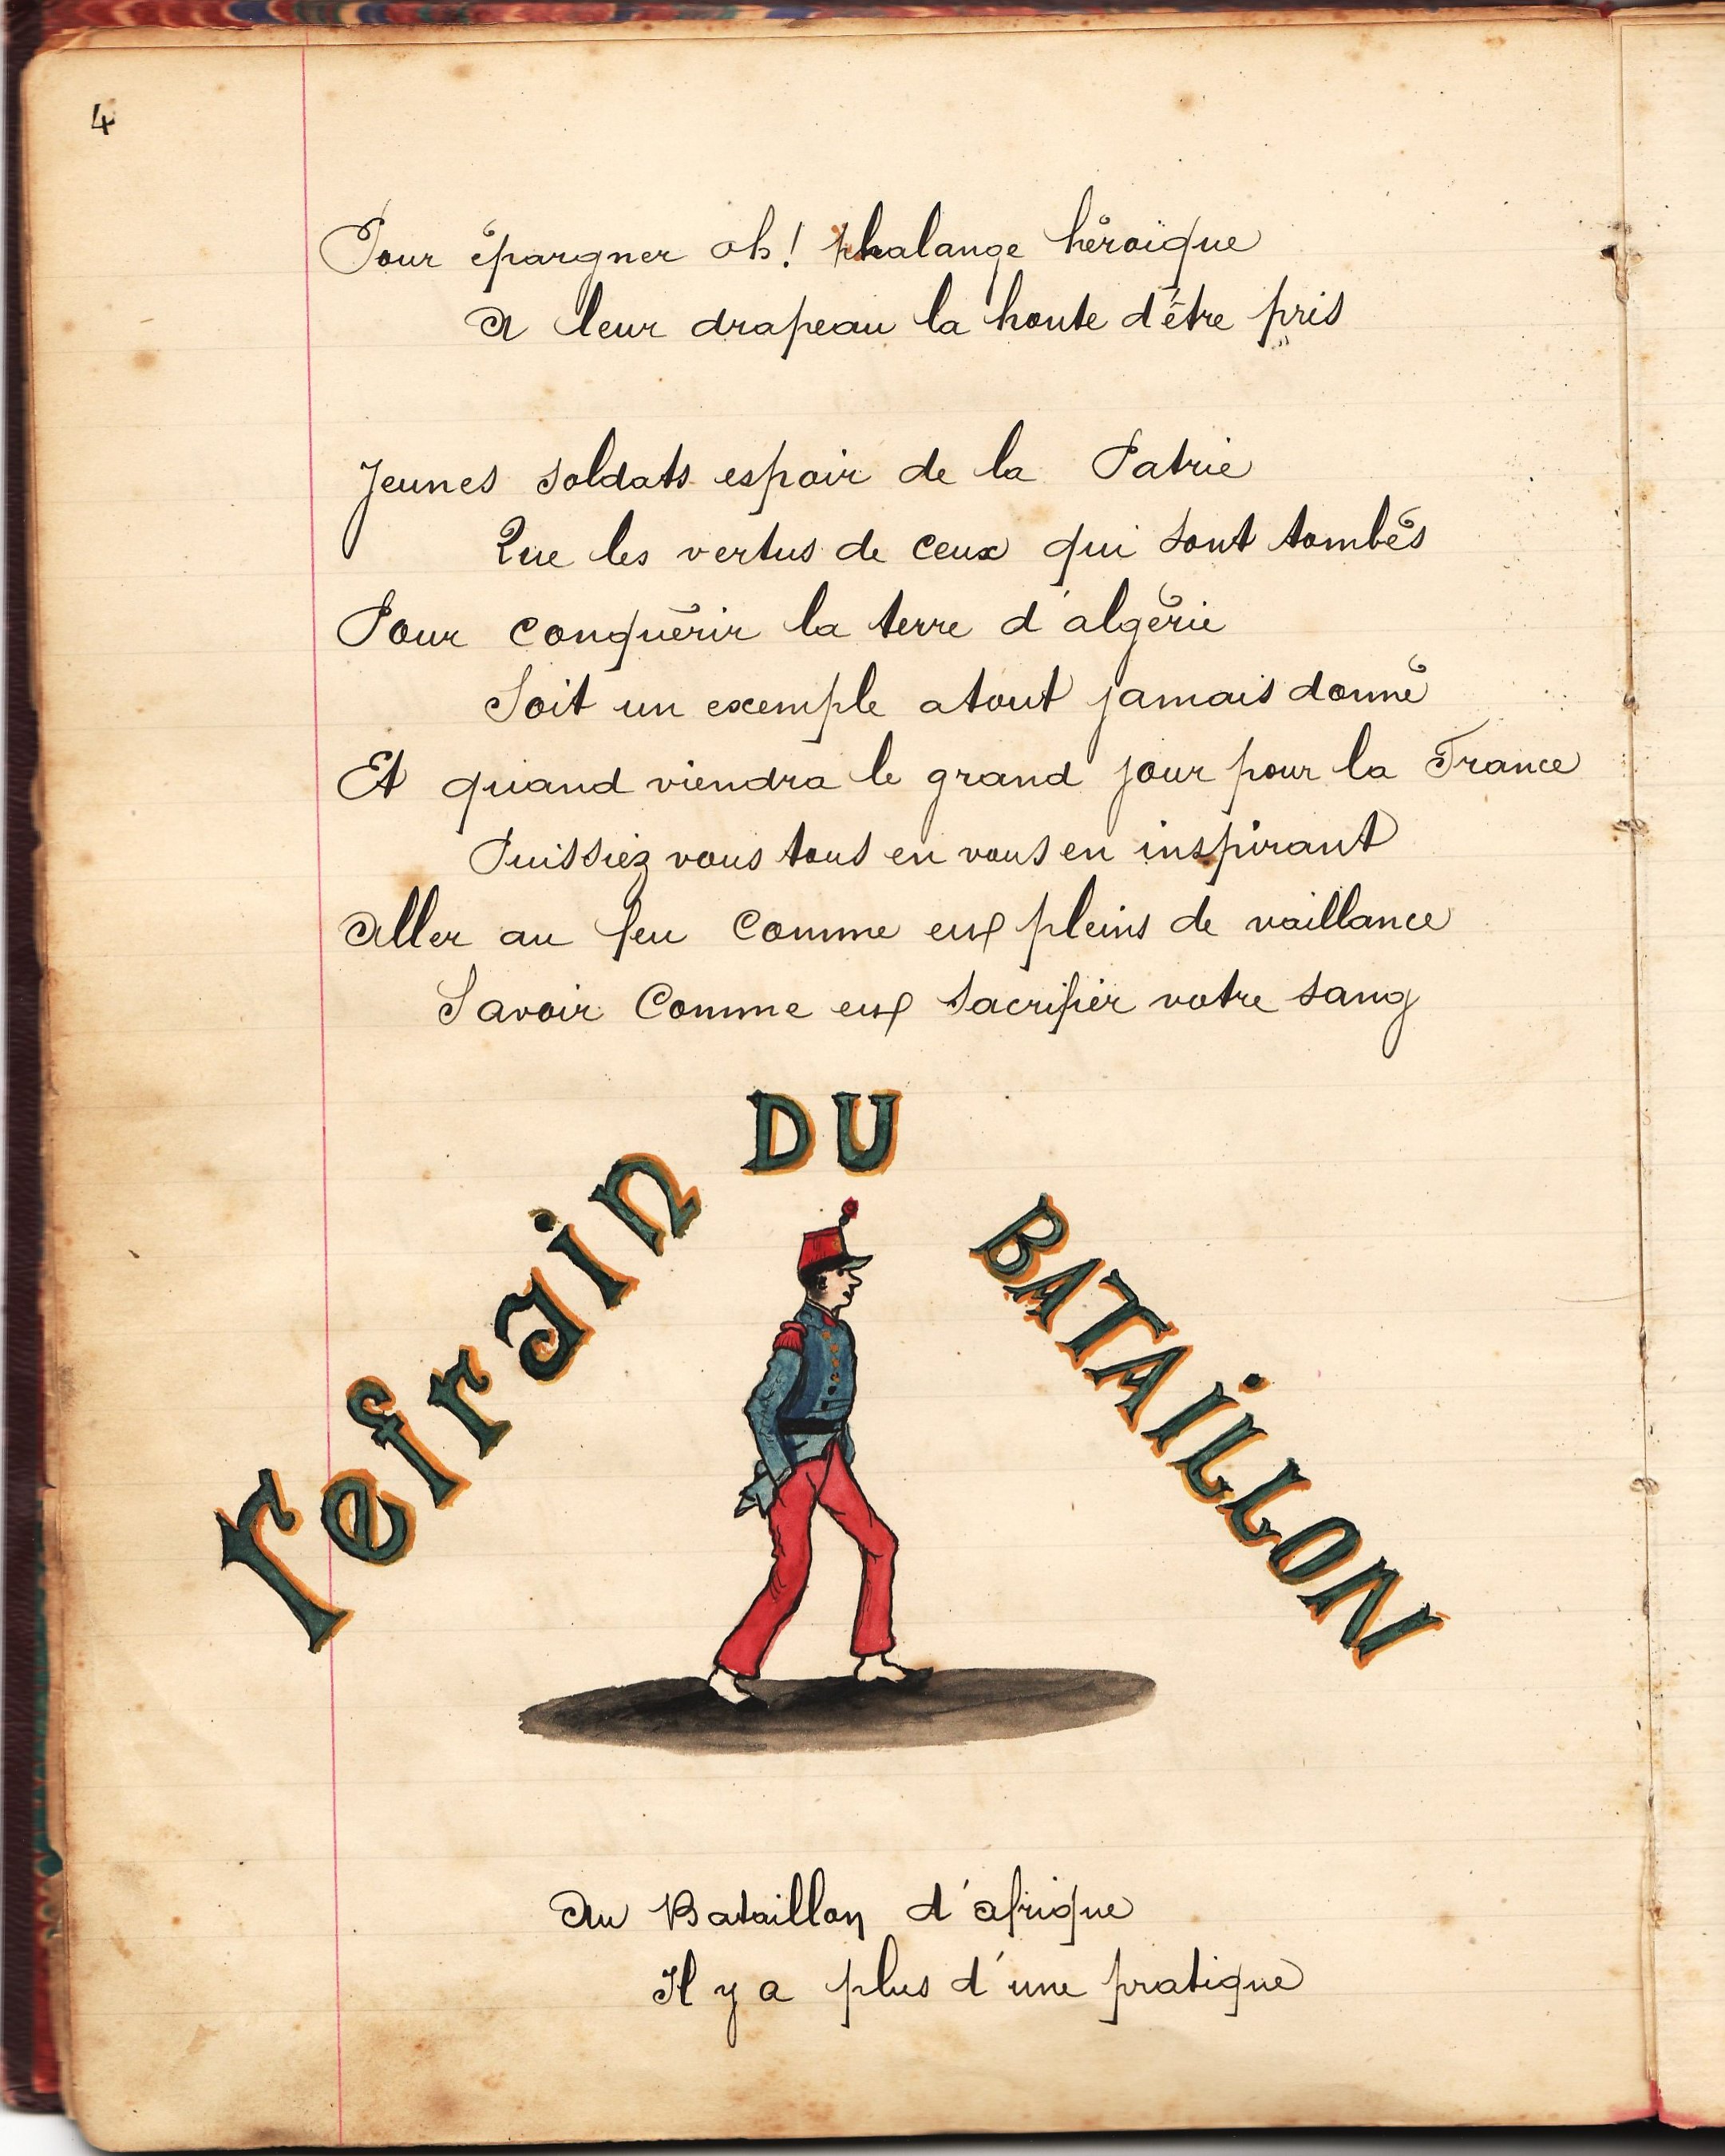 4
Pour épargner oh! phalange héroïque
A leur drapeau la honte d'être pris
Jeunes soldats espoir de la Patrie
Que les vertus de ceux qui sont tombés
Pour conquérir la terre d'algérie
Soit un exemple atout jamais donné
Et quand viendra le grand jour pour la France
Puissiez vous tous en vous en inspirant
Aller au feu Comme eux pleins de vaillance
Savoir Comme eux sacrifier votre sang
refrain DU BATAiLLON
Au Bataillon d'afrique
Il y a plus d'une pratique